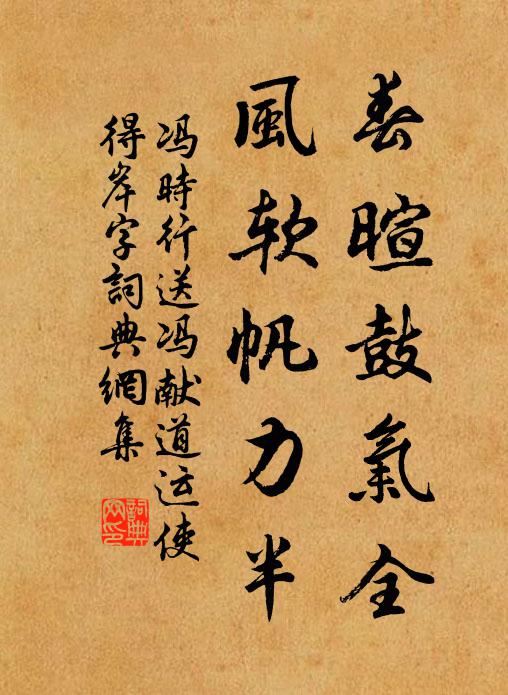 春暄鼓氣全
風软帆力半
冯時行送冯献道运使
得岸字詞典網集
詞典网印